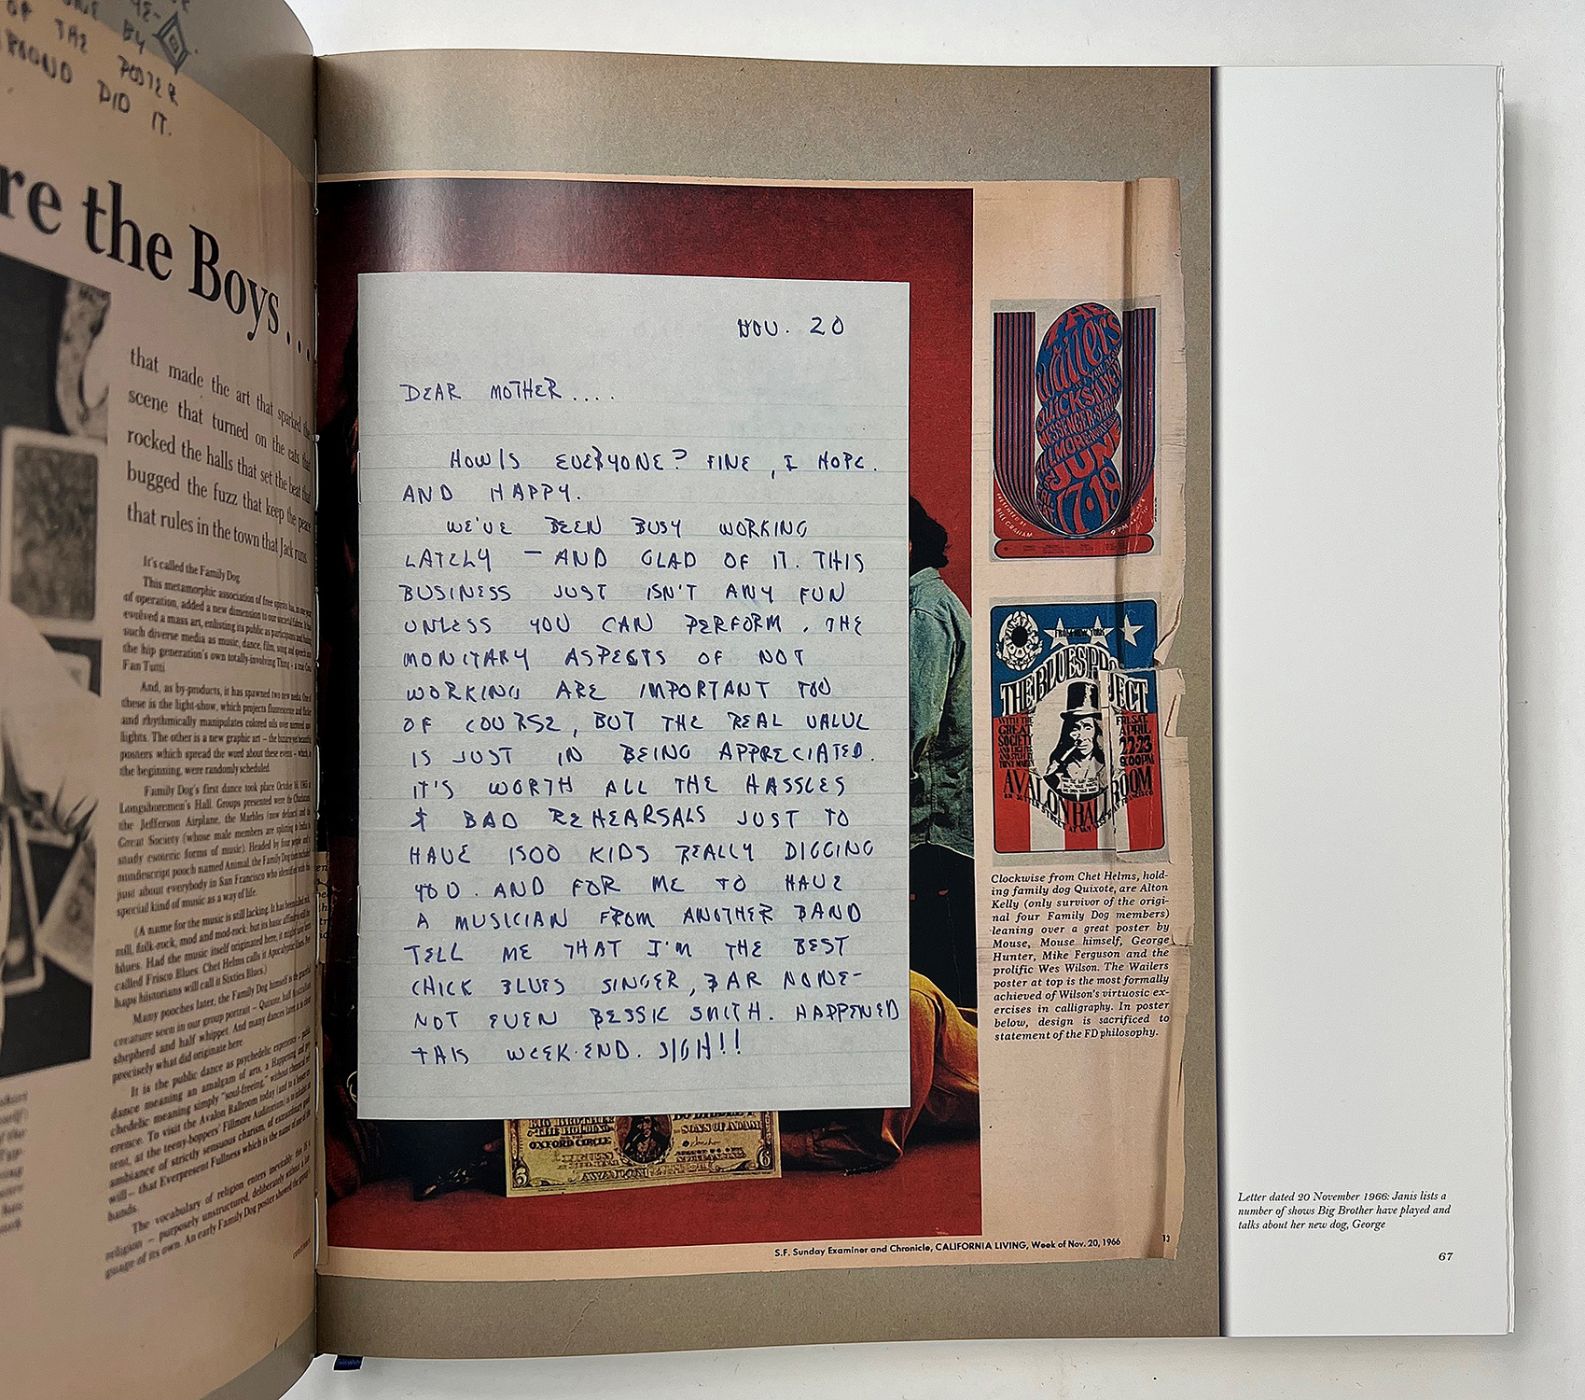 BY
OF THE POSTER
DID IT.
re the Boys . . . .
that made the art that sparked the
scene that turned on the cats that
rocked the halls that set the beat that
bugged the fuzz that keep the peace
that rules in the town that Jack runs.
It's called the Family Dog
This metamorphic association of free spirits has, in one year
of operation, added a new dimension to our societal culture. It has
evolved a mass art, enlisting its public as participants and
such diverse media as music, dance, film, song and speech
the hip generation's own totally-involving Thing – a true Cosa
Fan Tutti
And, as by-products, it has spawned two new media. One of
these is the light-show, which projects fluorescence and flicker
and rhythmically manipulates colored oils over
lights. The other is a new graphic art – the bizarre yet beautiful
posters which spread the word about these events – which in
the beginning, were randomly scheduled.
Family Dog's first dance took place October 16, 1965
Longshoremen's Hall. Groups presented were the Charlatans,
the Jefferson Airplane, the Marbles (now defunct) and the
Great Society (whose male members are splitting to India to
study esoteric forms of music). Headed by four people and a
nondescript pooch named Animal, the Family Dog then included
just about everybody in San Francisco who identified with this
special kind of music as a way of life.
(A name for the music is still lacking. It has been called
raff, folk-rock, mod and mod-rock; but its basic
blues. Had the music itself originated here, it might have been
called Frisco Blues. Chet Helms calls it Apocalyptic
haps historians will call it Sixties Blues.)
Many pooches later, the Family Dog himself is the graceful
creature seen in our group portrait – Quixote, half
shepherd and half whippet. And many dances later
precisely what did originate here
It is the public dance as psychedelic experience – public
dance meaning an amalgam of arts, a Happening and
chedelic meaning simply "soul-freeing,"
To visit the Avalon Ballroom today (and to a lesser
tent, at the teeny-boppers' Fillmore Auditorium) is to
ambiance of strictly sensuous charism, of extraordinary
will – that Everpresent Fullness which is the name of one of the
bands.
The vocabulary of religion enters inevitably
religion – purposely unstructured, deliberately without a
guage of its own. An early Family Dog poster showed the
NOV. 20
DEAR MOTHER....
HOW IS EVERYONE? FINE, I HOPE.
AND HAPPY.
WE'VE BEEN BUSY WORKING
LATELY – AND GLAD OF IT. THIS
BUSINESS JUST ISN'T ANY FUN
UNLESS YOU CAN PERFORM. THE
MONITARY ASPECTS OF NOT
WORKING ARE IMPORTANT TOO
OF COURSE, BUT THE REAL VALUE
IS JUST IN BEING APPRECIATED.
IT'S WORTH ALL THE HASSLES
& BAD REHEARSALS JUST TO
HAVE 1500 KIDS REALLY DIGGING
YOU. AND FOR ME TO HAVE
A MUSICIAN FROM ANOTHER BAND
TELL ME THAT I'M THE BEST
CHICK BLUES SINGER, BAR NONE–
NOT EVEN BESSIE SMITH. HAPPENED
THIS WEEK-END. SIGH!!
BIG BROTHER
& THE HOLDING
BO DIDDLEY
OXFORD CIRCLE
SONS OF ADAM
6 AVALON 6
THE
Wailers
QUICKSILVER
MESSENGER SERVICE
FILLMORE
JUNE
17 18
PRESENTED BY
BILL GRAHAM
9 PM
FROM NEW YORK
THE BLUES PROJECT
WITH THE
GREAT
SOCIETY
FRI. SAT.
APRIL
22·23
9:00PM
AVALON BALLROOM
Clockwise from Chet Helms, hold-
ing family dog Quixote, are Alton
Kelly (only survivor of the origi-
nal four Family Dog members)
leaning over a great poster by
Mouse, Mouse himself, George
Hunter, Mike Ferguson and the
prolific Wes Wilson. The Wailers
poster at top is the most formally
achieved of Wilson's virtuosic ex-
ercises in calligraphy. In poster
below, design is sacrificed to
statement of the FD philosophy.
S.F. Sunday Examiner and Chronicle, CALIFORNIA LIVING, Week of Nov. 20, 1966
13
Letter dated 20 November 1966: Janis lists a
number of shows Big Brother have played and
talks about her new dog, George
67